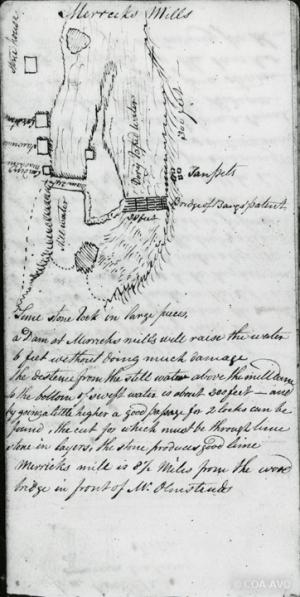 Merricks Mills
Store house
Still water
Very rapid water
300 feet
30 feet
Tan pits
Bridge of Bangs' patent
Lime stone lock in large pieces,
a Dam at Merricks mills will raise the water
6 feet without doing much damage
The distence from the still water above the mill dam
to the bottom of swift water is about 300 feet — and
by going a little higher a good passage for 2 locks can be
found, the cut for which must be through lime
stone in layers, the stone produces good lime
Merricks mill is 8½ Miles from the wood
bridge in front of Mr. Olmsteads
© COA AVO